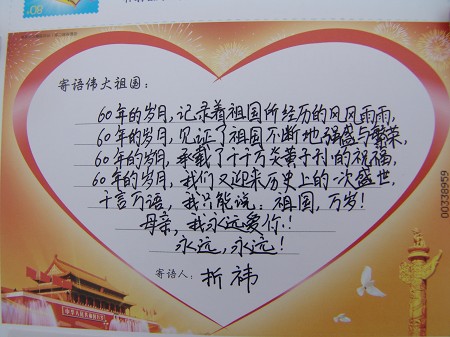 寄语伟大祖国：
60年的岁月，记录着祖国所经历的风风雨雨，
60年的岁月，见证了祖国不断地强盛与繁荣，
60年的岁月，承载了千千万炎黄子孙的祝福，
60年的岁月，我们又迎来历史上的一次盛世，
千言万语，我只能说：祖国，万岁！
母亲，我永远爱你！！
永远，永远！
寄语人：折祎
中华人民共和国万岁
00338959